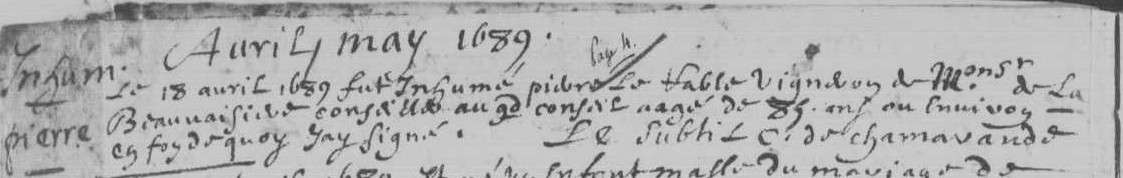 Avril, may 1689.
Inhum. Le 18 avril 1689 fut Inhumé pierre Le Vigneron de Monsr de La
Beauvaisiere conseiller au gd conseil aagé de 85 ans ou Environ
pierre en foy de quoy Jay signé. Le Subtil C. de chamavande
1689 Enfant masle du mariage de